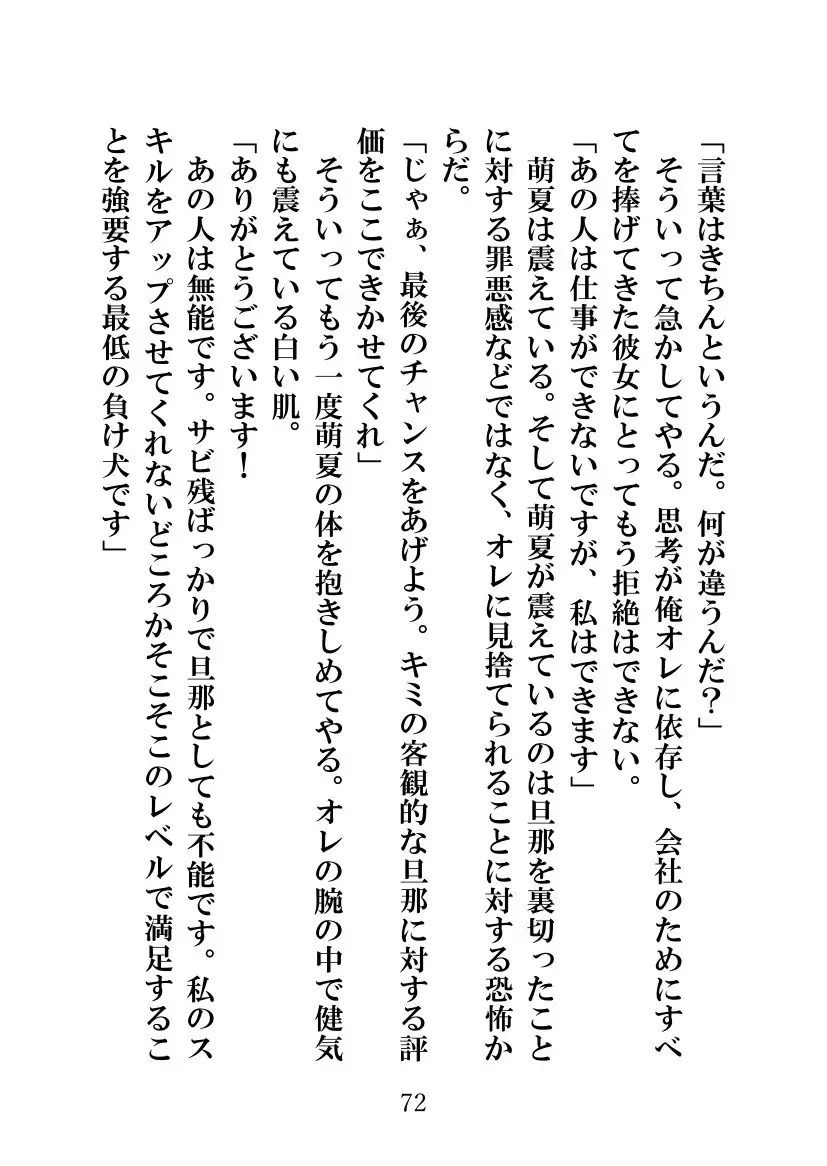 「言葉はきちんというんだ。何が違うんだ？」
　そういって急かしてやる。思考が俺オレに依存し、会社のためにすべ
てを捧げてきた彼女にとってもう拒絶はできない。
「あの人は仕事ができないですが、私はできます」
　萌夏は震えている。そして萌夏が震えているのは旦那を裏切ったこと
に対する罪悪感などではなく、オレに見捨てられることに対する恐怖か
らだ。
「じゃぁ、最後のチャンスをあげよう。キミの客観的な旦那に対する評
価をここできかせてくれ」
　そういってもう一度萌夏の体を抱きしめてやる。オレの腕の中で健気
にも震えている白い肌。
「ありがとうございます！
　あの人は無能です。サビ残ばっかりで旦那としても不能です。私のス
キルをアップさせてくれないどころかそこそこのレベルで満足するこ
とを強要する最低の負け犬です」
72